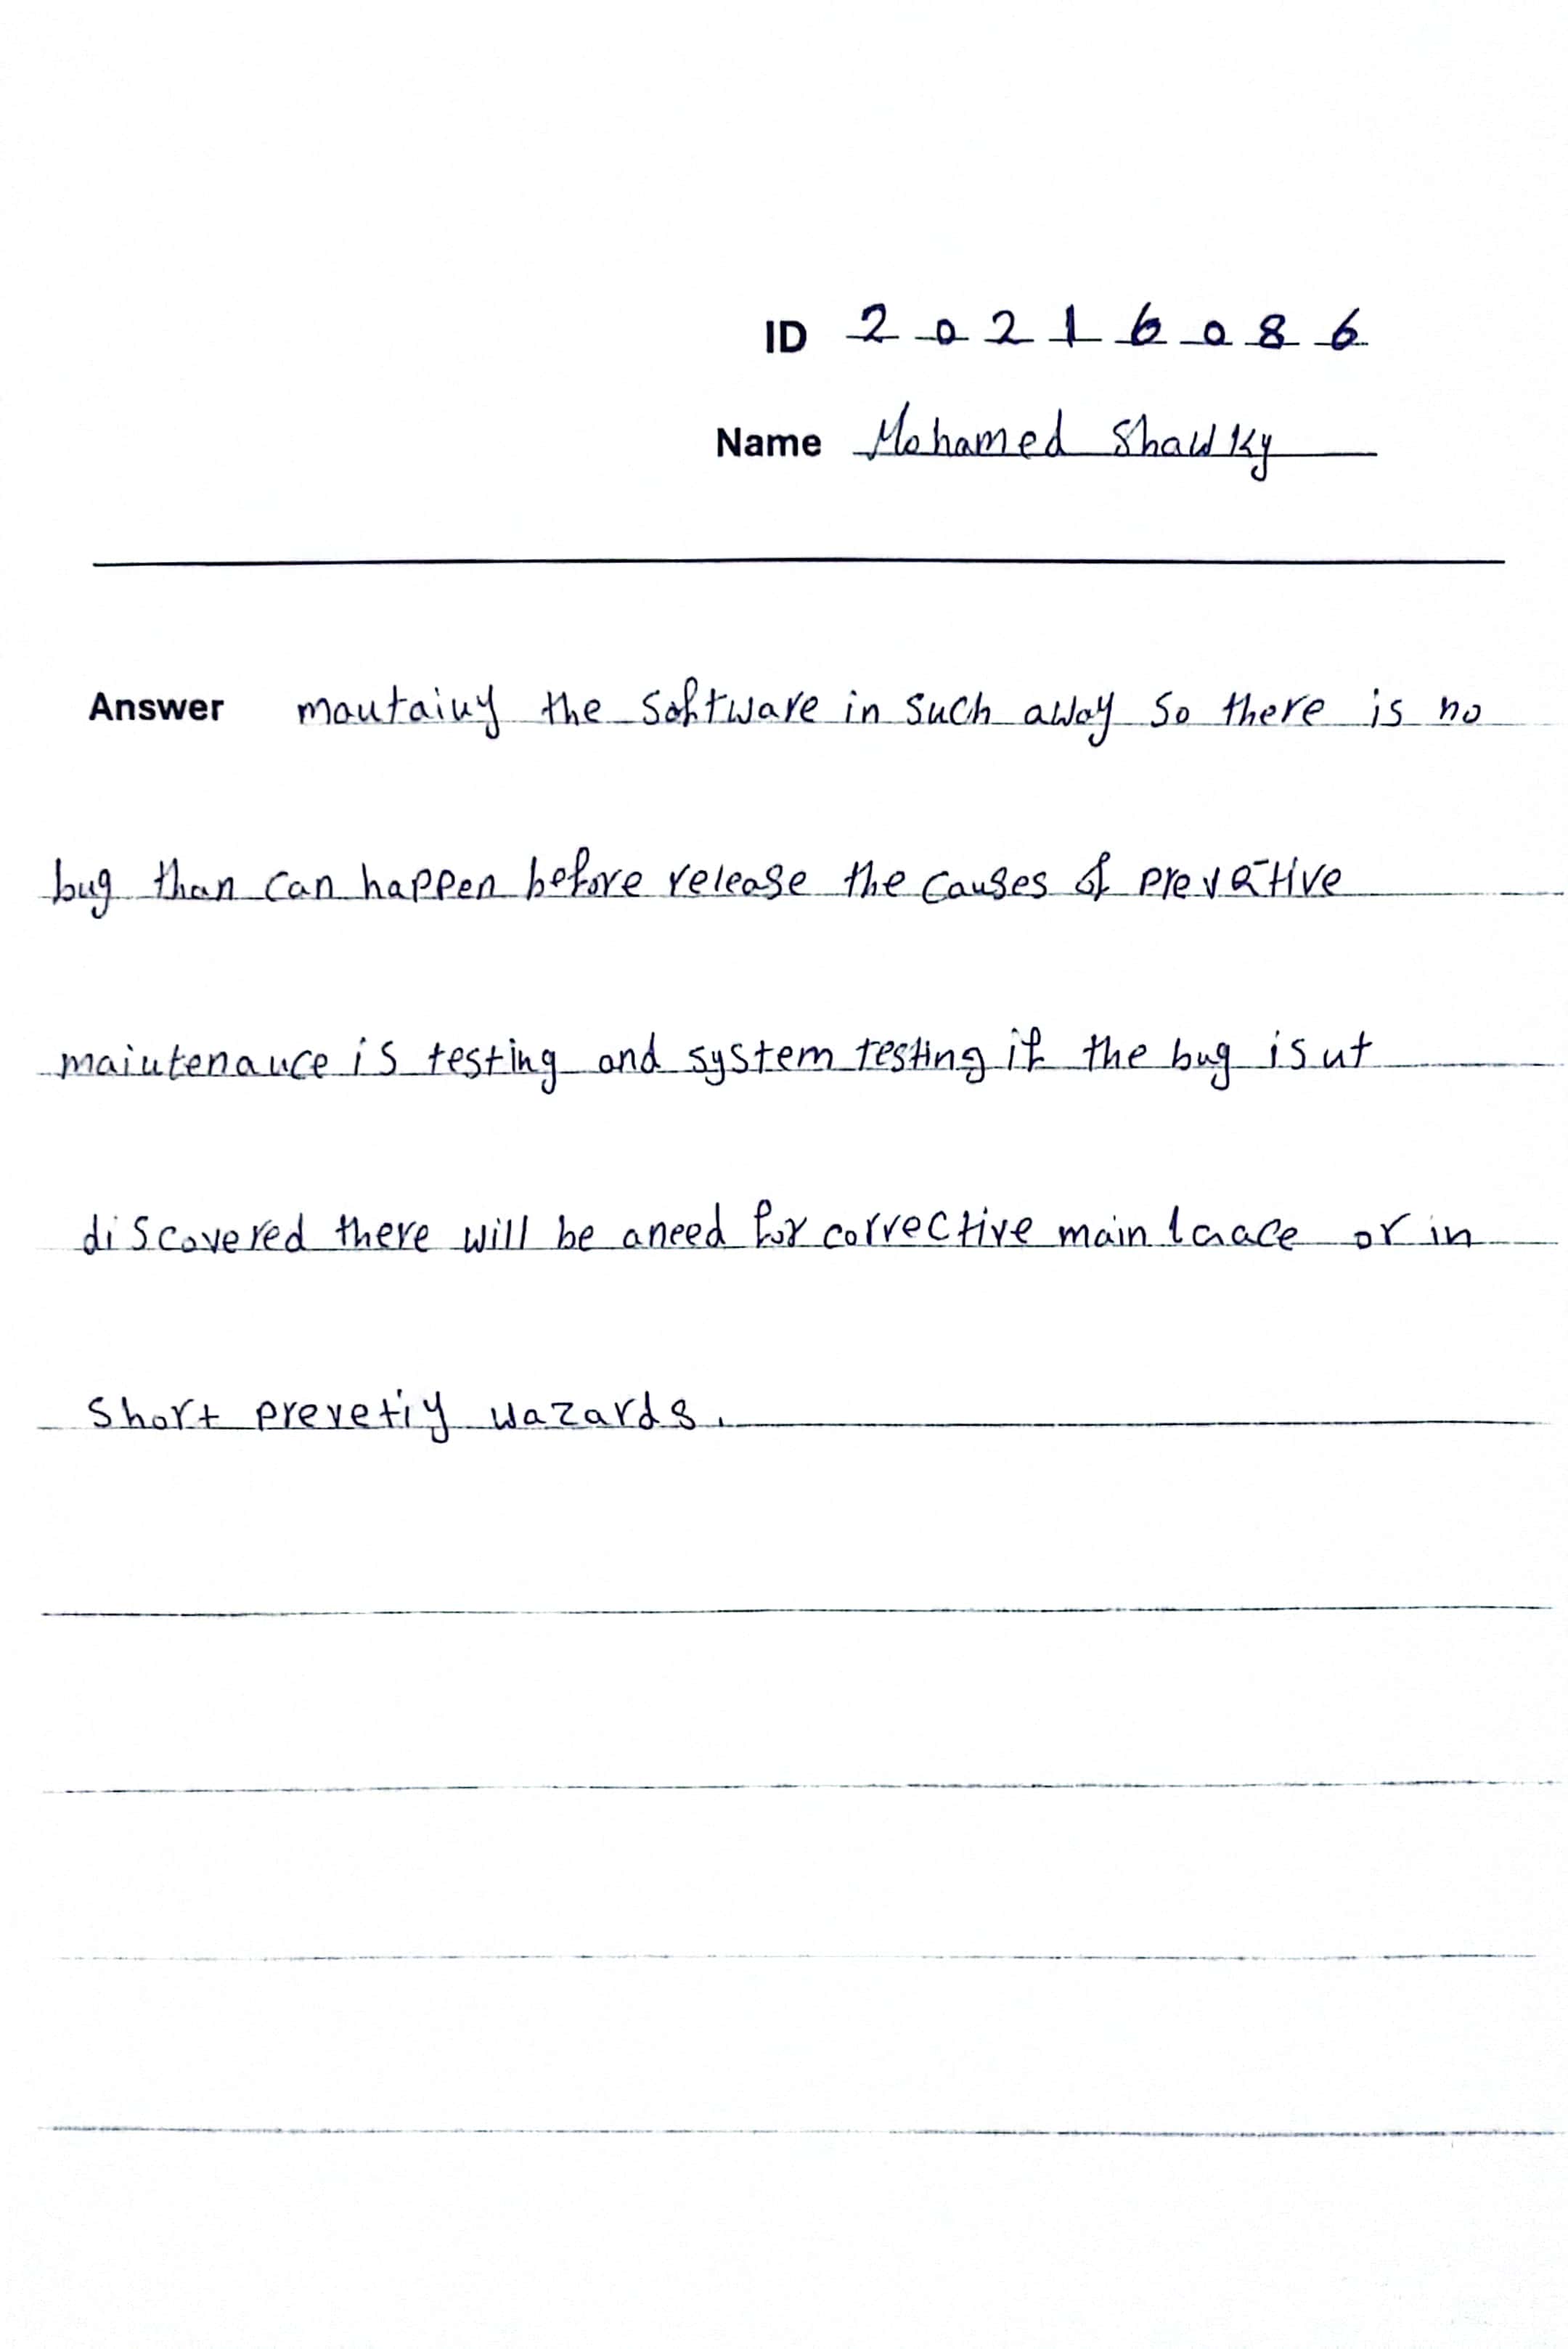 ID 2 0 2 1 6 0 8 6
Name Mohamed Shawky
Answer mautaiuy the software in such away so there is no
bug than can happen before release the causes of prevetive
maiutenauce is testing and system testing if the bug isut
discovered there will be aneed for corrective main or in
short prevetiy wazards.